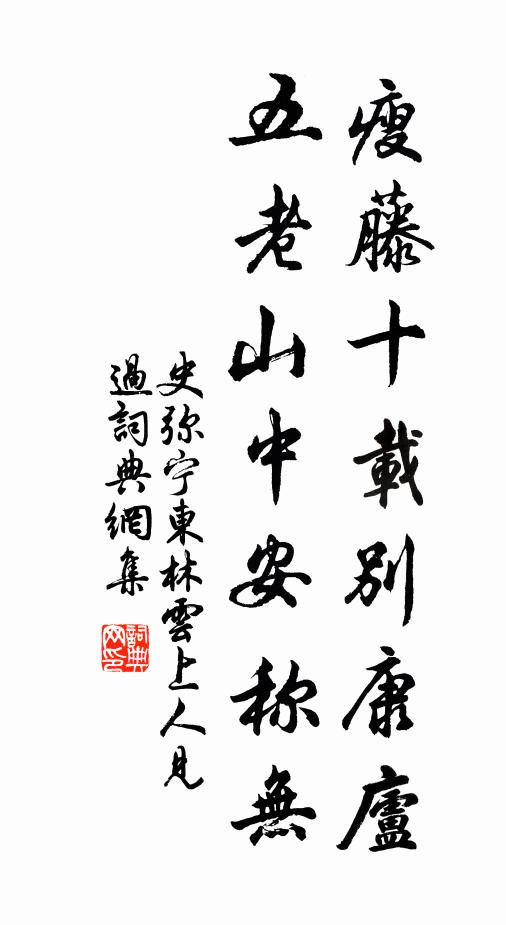 瘦藤十載別康廬
五老山中安称無
史弥宁東林雲上人見
過詞典網集
詞典網印